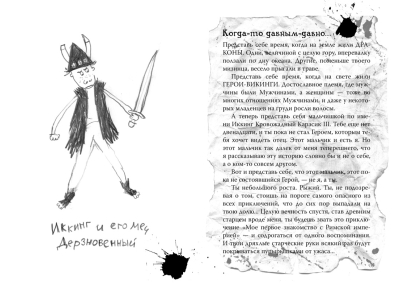 Иккинг и его меч
Дерзновенный
Когда-то давным-давно...
Представь себе время, когда на земле жили ДРА-
КОНЫ. Одни, величиной с целую гору, вперевалку
ползали по дну океана. Другие, поменьше твоего
мизинца, весело прыгали в траве.
Представь себе время, когда на свете жили
ГЕРОИ-ВИКИНГИ. Достославное племя, где муж-
чины были Мужчинами, а женщины — тоже во
многих отношениях Мужчинами, и даже у некото-
рых младенцев на груди росли волосы.
А теперь представь себя мальчишкой по име-
ни Иккинг Кровожадный Карасик III. Тебе еще нет
двенадцати, и ты пока не стал Героем, которым те-
бя хочет видеть отец. Этот мальчик и есть я. Но
этот мальчик так далек от меня теперешнего, что
я рассказываю эту историю словно бы и не о себе,
а о ком-то совсем другом.
Вот и представь себе, что этот мальчик, этот по-
ка не состоявшийся Герой, — не я, а ты.
Ты небольшого роста. Рыжий. Ты, не подозре-
вая о том, стоишь на пороге самого опасного из
всех приключений, что до сих пор выпадали на
твою долю. Целую вечность спустя, став древним
старцем вроде меня, ты будешь звать это приклю-
чение «Мое первое знакомство с Римской импе-
рией» — и содрогаться от одного воспоминания.
И твои дряхлые старческие руки всякий раз будут
покрываться пупырышками от ужаса...